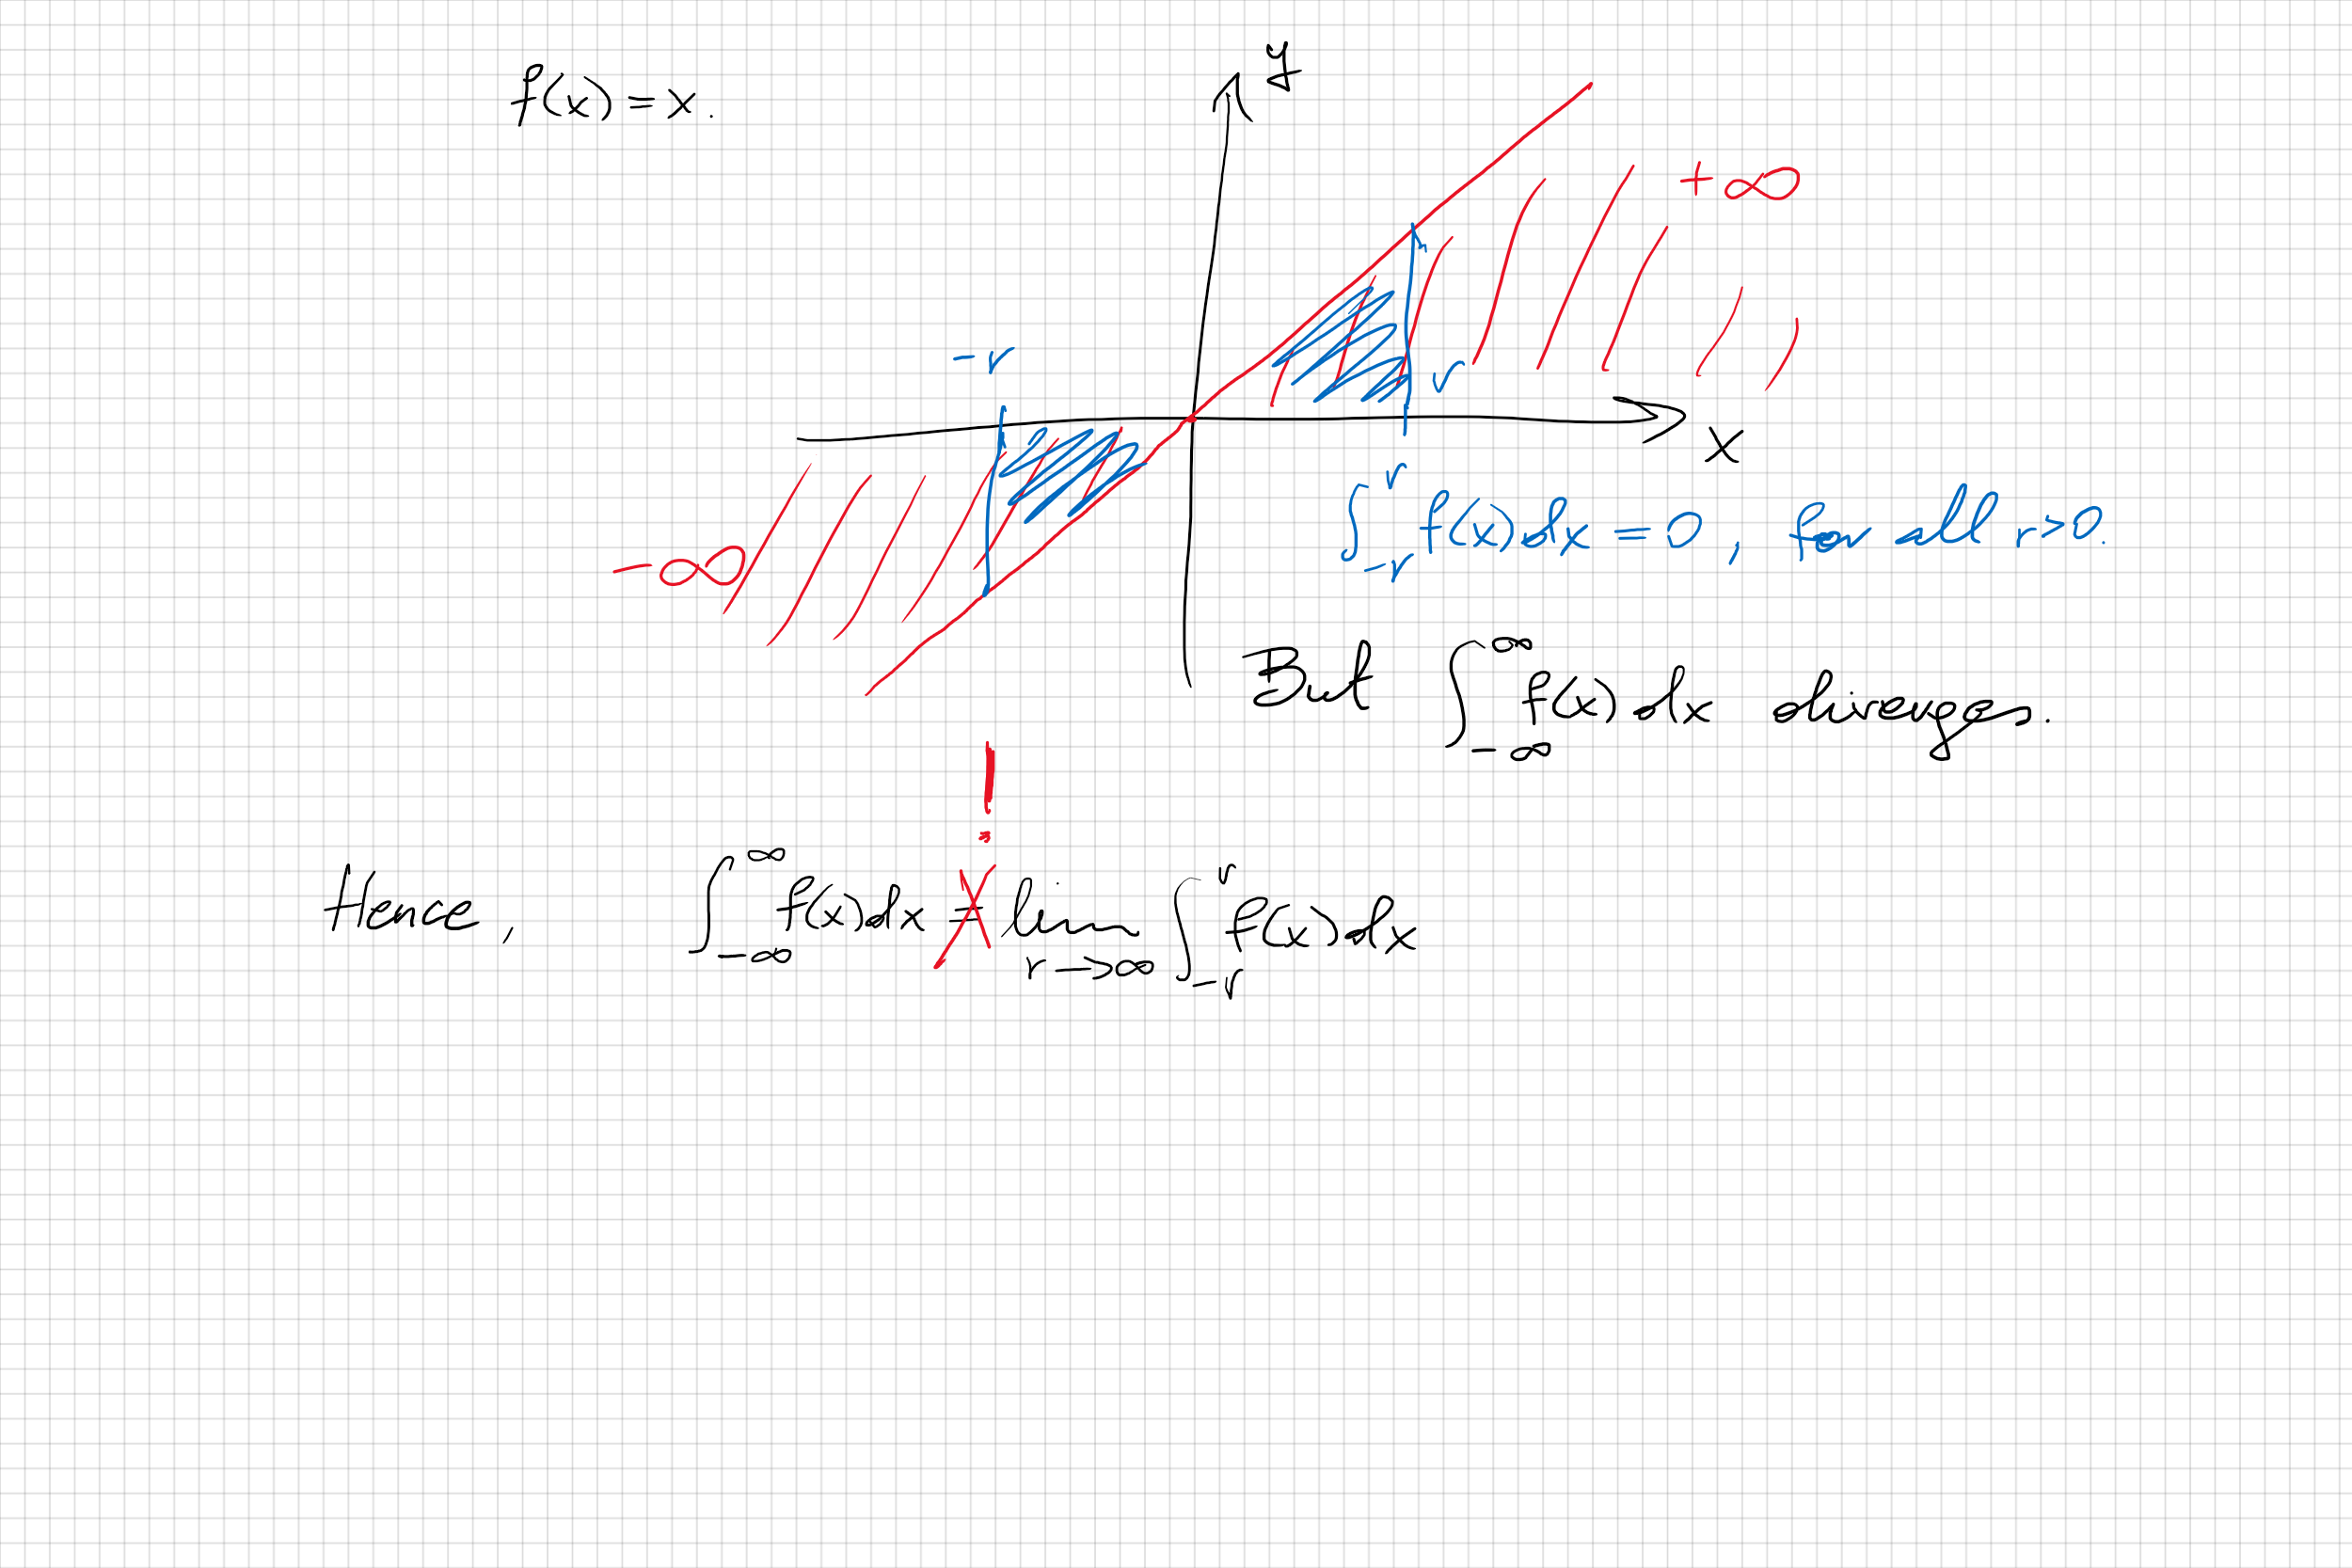 f(x) = x.
y
+∞
-r
r
x
-∞
∫_{-r}^{r} f(x)dx = 0, for all r>0.
But ∫_{-∞}^{∞} f(x)dx diverges.
!
Hence, ∫_{-∞}^{∞} f(x)dx ≠ lim_{r→∞} ∫_{-r}^{r} f(x)dx